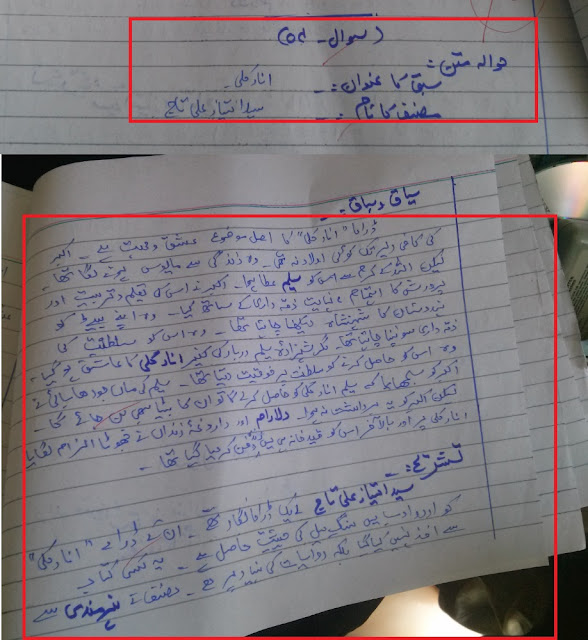 (سوال - 04)
حوالہ متن:
سبق کا عنوان :- انارکلی -
مصنف کا نام :- سید امتیاز علی تاج -
سیاق و سباق :-
ڈراما "انارکلی" کا اصل موضوع عشق و محبت ہے - اکبر
کی کافی دیر تک کوئی اولاد نہ تھی - وہ زندگی سے مایوس ہونے لگا تھا -
لیکن اللہ کے کرم سے اس کو سلیم عطا ہوا - اکبر نے اس کی تعلیم و تربیت اور
پرورش کا اہتمام نہایت ذمہ داری کے ساتھ کیا - وہ اپنے بیٹے کو
ہندوستان کا شہنشاہ دیکھنا چاہتا تھا - وہ اس کو سلطنت کی
ذمہ داری سونپنا چاہتا تھا - مگر شہزادہ سلیم دربار کی کنیز انارکلی کا عاشق ہو گیا -
وہ اس کو حاصل کرنے کو سلطنت پر فوقیت دیتا تھا - سلیم کی ماں جودھا بائی نے
اکبر کو سمجھایا کہ سلیم انارکلی کو حاصل کرنے گا تو ان کا بیٹا بھی بن جائے گا -
لیکن اکبر کو یہ برداشت نہ ہوا - دلارام اور داروغۂ زندان نے جھوٹا الزام لگایا
انارکلی پر اور بالآخر اس کو قید خانہ میں دفن کر دیا گیا تھا -
تشریح :-
سید امتیاز علی تاج ایک ڈراما نگار تھے - ان کے ڈرامے "انارکلی"
کو اردو ادب میں سنگِ میل کی حیثیت حاصل ہے - یہ کسی کتاب
سے اخذ نہیں کیا گیا بلکہ روایات کی بنیاد پر ہے - مصنف نے ہنرمندی سے